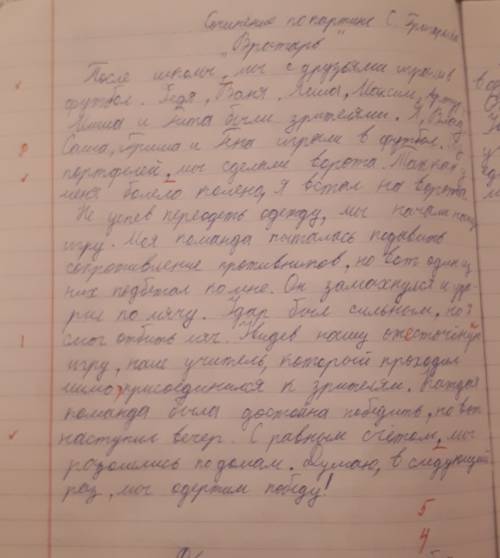 Сочинение по картине С. Григорьева
"Вратарь"
После школы, мы с друзьями играли в
футбол. Федя, Ваня, Миша, Максим,
Миша и Аита были зрителями. Я, Влад,
Саша, Гриша и Яна играли в футбол. Из
портфелей, мы сделали ворота.
меня болело колено, я встал на ворота.
Не успев переодеть одежду, мы начали нашу
игру. Моя команда пыталась подавить
сопротивление противников, но вот один из
них подбежал ко мне. Он замахнулся и уда-
рил по мячу. Удар был сильным, но я
смог отбить мяч. Увидев нашу ожесточённую
игру, наш учитель, который проходил
мимо, присоединился к зрителям. Каждая
команда была достойна победить, но вот
наступил вечер. С равным счётом, мы
разошлись по домам. Думаю, в следующий
раз, мы одержим победу!
5
4